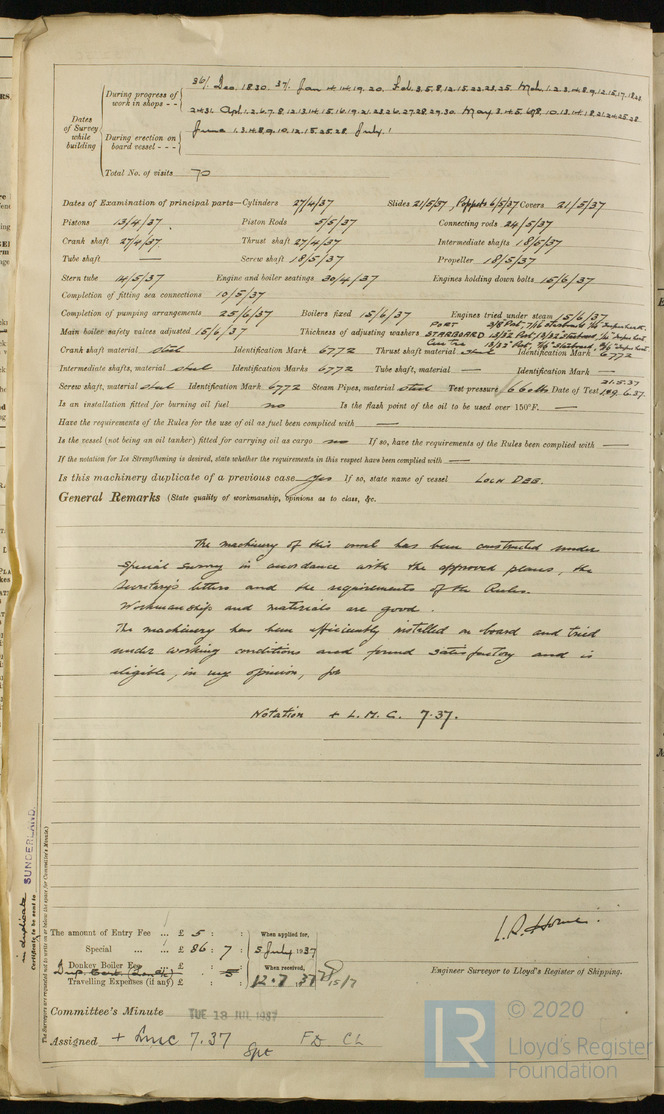 Dates of Survey while building
During progress of work in shops - -
36/. Dec. 18.30. 37/. Jan 14.19.20. Feb. 3.5.8.12.15.22.23.25. Mch. 1.2.3.4.8.9.12.15.17.
24.31. Apl. 1.2.6.7.8.12.13.14.15.16.19.21.23.26.27.28.29.30. May 3.4.5. 10.13.14.18.21.24.25.28
During erection on board vessel - - -
June 1.3.4.8.9.10.12.15.25.28 July 1
Total No. of visits 70
Dates of Examination of principal parts—Cylinders 27/4/37 Slides 21/5/37, Poppets 6/5/37 Covers 21/5/37
Pistons 13/4/37. Piston Rods 5/5/37 Connecting rods 24/5/37
Crank shaft 27/4/37 Thrust shaft 27/4/37 Intermediate shafts 18/5/37
Tube shaft — Screw shaft 18/5/37 Propeller 18/5/37
Stern tube 14/5/37 Engine and boiler seatings 30/4/37 Engines holding down bolts 15/6/37
Completion of fitting sea connections 10/5/37
Completion of pumping arrangements 25/6/37 Boilers fixed 15/6/37 Engines tried under steam 15/6/37
Main boiler safety valves adjusted 15/6/37 Thickness of adjusting washers PORT 3/8 Port, 7/16 Starboard
STARBOARD 13/32 Port, 13/32 Starboard
Centre
Crank shaft material steel Identification Mark 6772 Thrust shaft material steel Identification Mark 6772
Intermediate shafts, material steel Identification Marks 6772 Tube shaft, material — Identification Mark —
Screw shaft, material steel Identification Mark 6772 Steam Pipes, material steel Test pressure 660 lbs Date of Test 21.5.37
Is an installation fitted for burning oil fuel no Is the flash point of the oil to be used over 150°F. —
Have the requirements of the Rules for the use of oil as fuel been complied with —
Is the vessel (not being an oil tanker) fitted for carrying oil as cargo no If so, have the requirements of the Rules been complied with —
If the notation for Ice Strengthening is desired, state whether the requirements in this respect have been complied with —
Is this machinery duplicate of a previous case Yes If so, state name of vessel LOCH DEE.
General Remarks (State quality of workmanship, opinions as to class, &c.
The machinery of this vessel has been constructed under
special survey in accordance with the approved plans, the
Secretary's letters and the requirements of the Rules.
Workmanship and materials are good.
The machinery has been efficiently installed on board and tried
under working conditions and found satisfactory and is
eligible, in my opinion, for
Notation + L.M.C. 7.37.
in duplicate SUNDERLAND.
Certificate to be sent to
(The Surveyors are requested not to write on or below the space for Committee's Minute.)
The amount of Entry Fee ... £ 5 : : When applied for,
Special ... ... £ 86 : 7 : 5 July 1937
Donkey Boiler Fee £ : : When received,
Travelling Expenses (if any) £ : : 12.7.37
L.R. Horne.
Engineer Surveyor to Lloyd's Register of Shipping.
Committee's Minute TUE 13 JUL 1937
Assigned + LMC 7.37
Spt FD CL
© 2020
LR
Lloyd's Register
Foundation